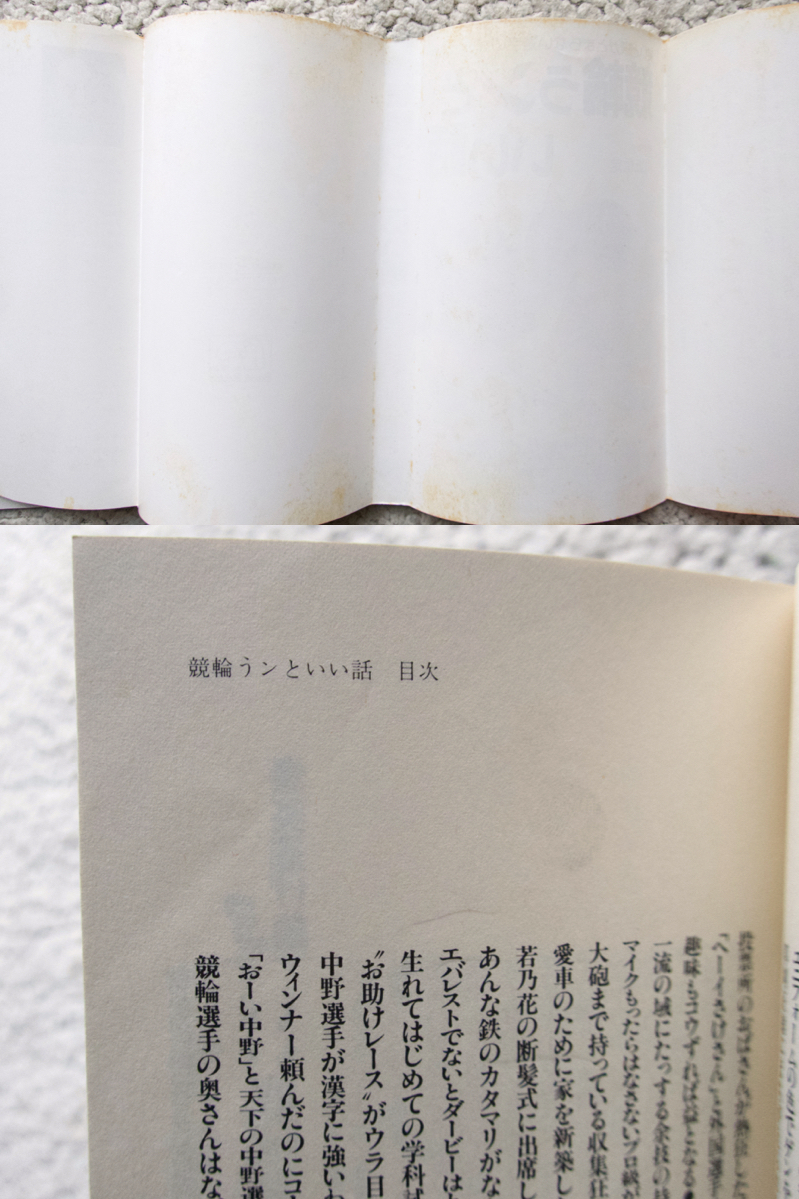 競輪うンといい話　目次
投票所のおばさんが熱出した
「ヘーイさげさん」と外国選手
趣味もコウずれば益となる
一流の域にたっする余技の
マイクもったらはなさないプロ級が
大砲まで持っている収集仕
愛車のために家を新築し
若乃花の断髪式に出席し
あんな鉄のカタマリがな
エバレストでないとダービーは
生れてはじめての学科試
〝お助けレース〟がウラ目
中野選手が漢字に強いわ
ウィンナー頼んだのにコ
「おーい中野」と天下の中野選
競輪選手の奥さんはな